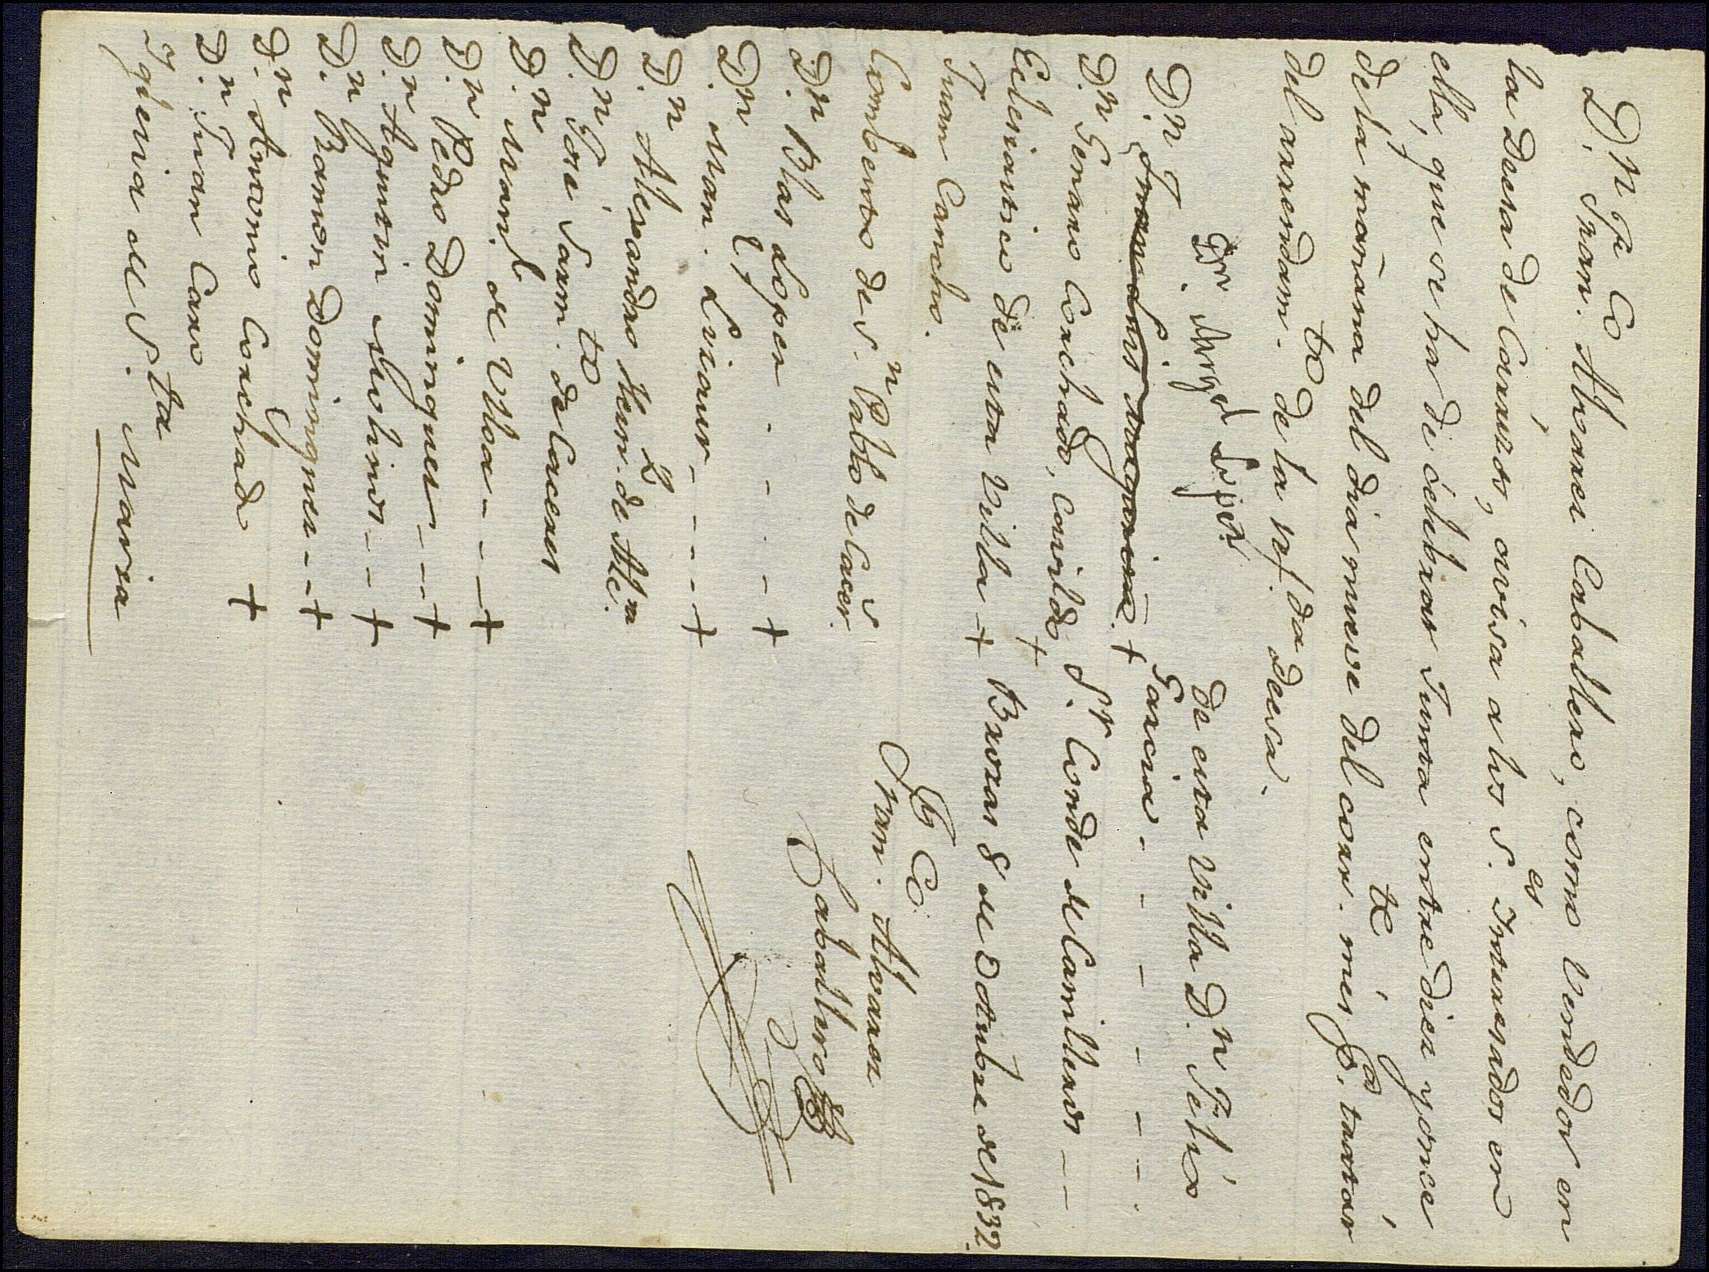 D.n Fran.co Alvarez Caballero, como Vendedor en
la Deesa de Corrales, avisa a los S.es Interesados en
ella, que se ha de celebrar Junta entre diez y once
de la mañana del dia nueve del corr.te mes p.a tratar
del arrendam.to de la ref.da Deesa.
D.n Jorge Lopez
de esta Villa D.n Felix
D.n Fran.co Luis +
Garcia - - - - - -
D.n Genaro Corchado, Cavildo + S.r Conde de Camilleros - -
Eclesiastico de esta Villa + Brozas 8 de Octubre de 1832.
Juan Cancho.
Combento de S.n Pablo de Cacer.s
Fran.co Alvarez
Caballero
D.n Blas Lopez - - - - +
D.n Man.l Lizaur - - - - +
D.n Alexandro Hern.z de Alc.ra
D.n José Sarm.to de Caceres
D.n Man.l de Ulloa - - - +
D.n Pedro Dominguez - - - +
D.n Agustin Molinos - - +
D.n Ramon Dominguez - - +
D.n Antonio Corchado +
D.n Juan Caro
Yglesia de S.ta Maria